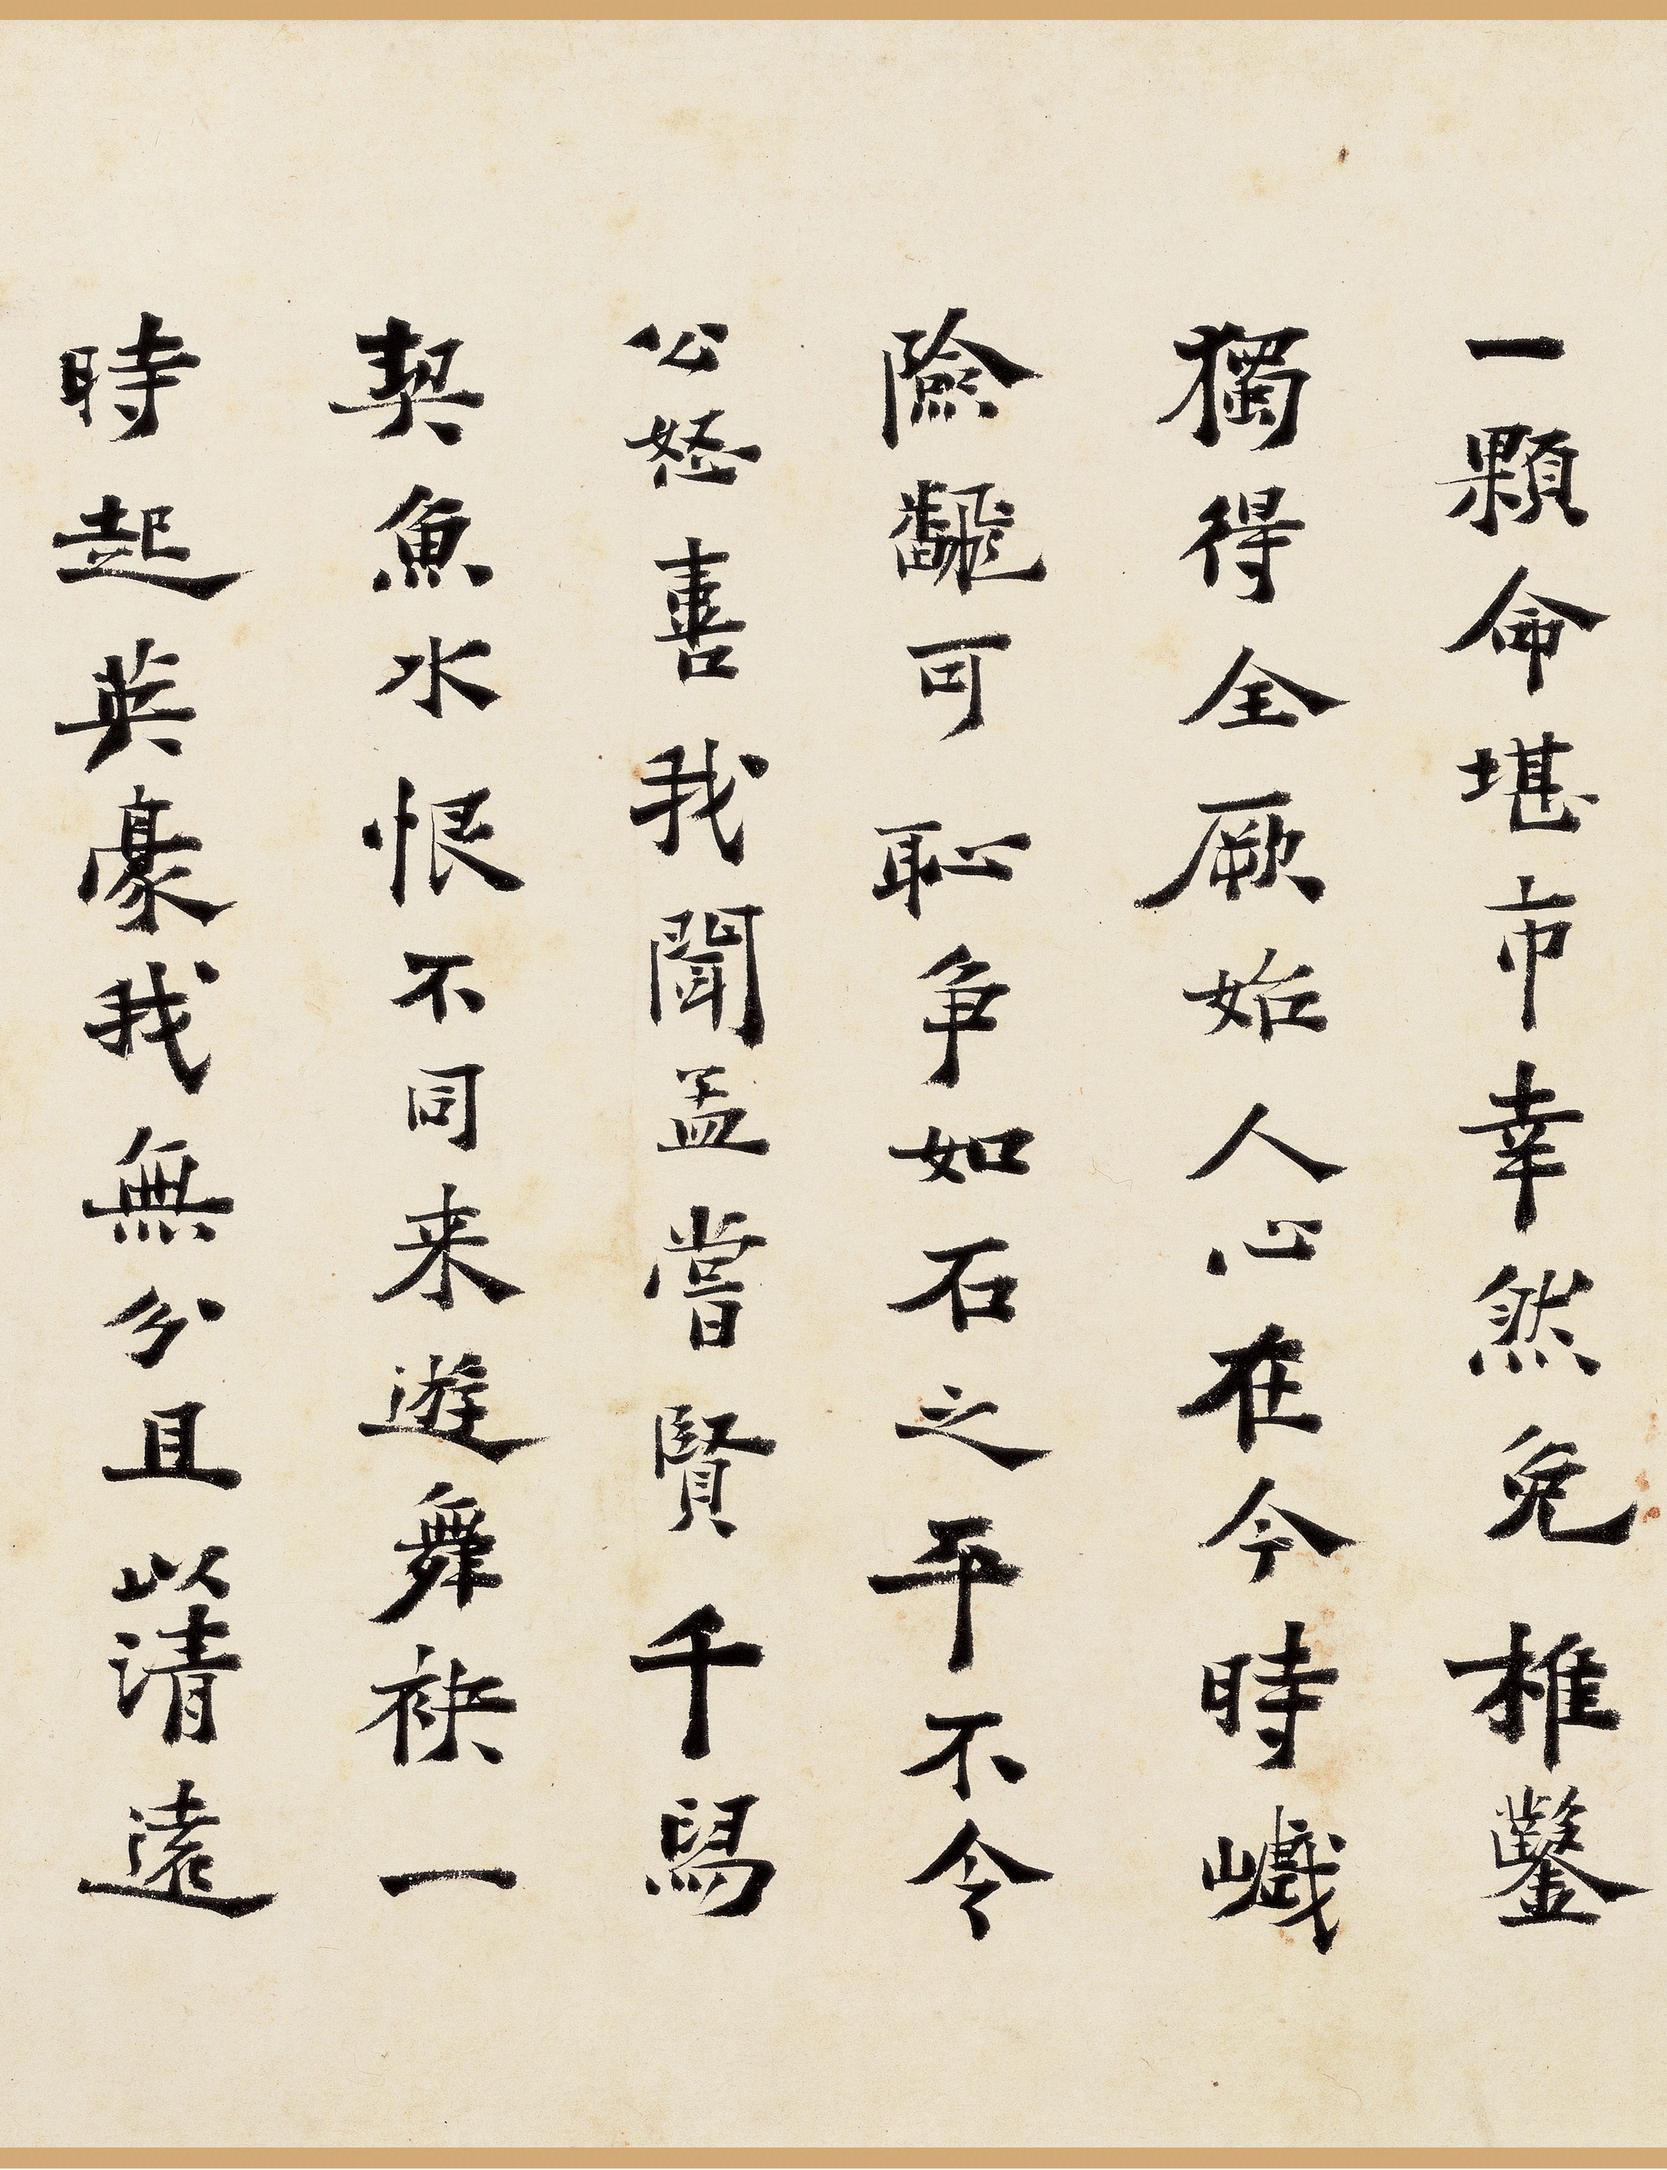 一顆命堪市幸然免椎鑿
獨得全厥始人心在今時巇
險齾可恥争如石之平不令
公怒喜我聞孟嘗賢千舄
契魚水恨不同来遊舞袂一
時起英豪我無分且以清遠